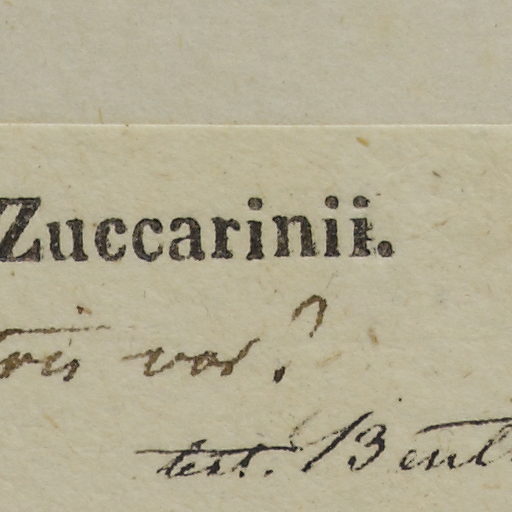 Zuccarinii.
var?
test. Benth